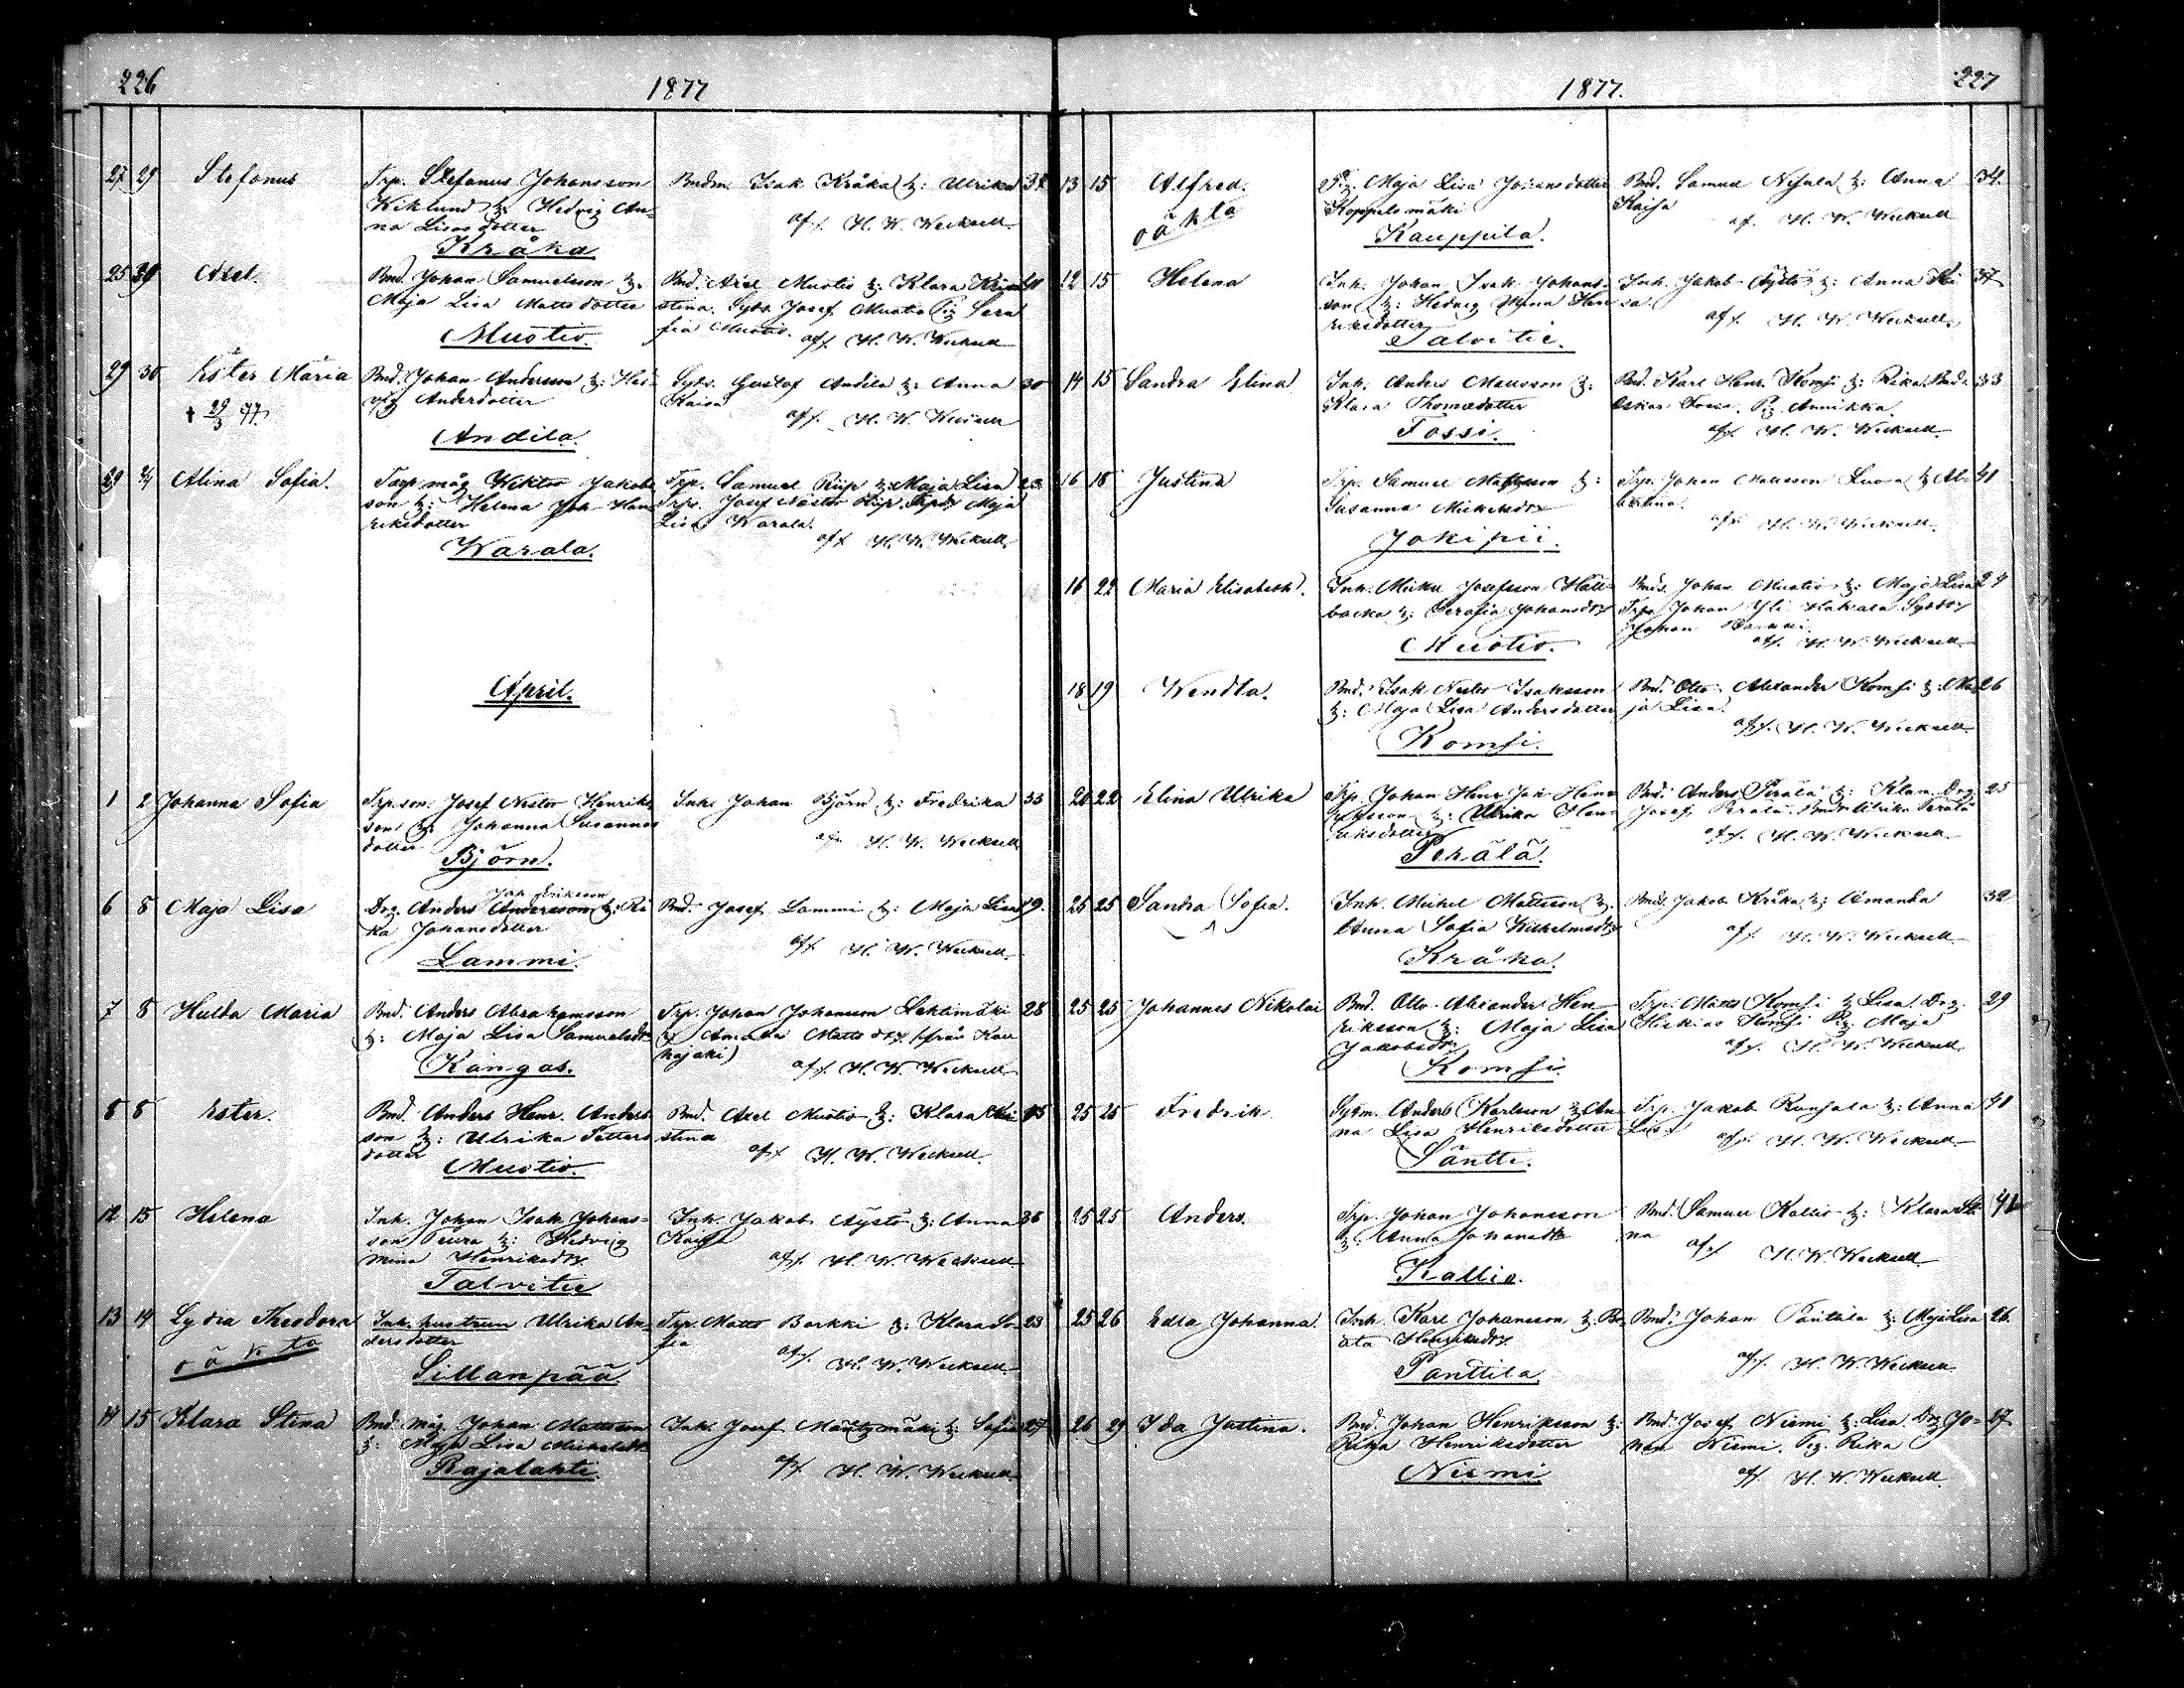 226
1877
27 29 Stefanus
Trp. Stefanus Johansson
Wiklund h: Hedvig An-
na Lisas dotter
Kråka
Bndm. Isak Kråka h: Ulrika
af. H. W. Wecksell
25 30 Axel.
Bnd. Johan Samuelsson h:
Maja Lisa Mattsdotter
Mustio.
Bnd. Axel Mustio h: Klara Kri
stina. Josef Mustio Sera
fia Mustio. af. H. W. Wecksell
29 30 Ester Maria
Bnd. Johan Andersson h: Hed-
vig Andersdotter
Andila.
Gustaf Andila h: Anna 30
Kaisa
af. H. W. Wecksell
29 Alina Sofia.
Torp. måg Wiktor Jakobs
son h: Helena Hen
riksdotter
Warala.
Trp. Samuel h: Maja Lisa 23
Trp. Josef Maja
Lisa Warala.
af H. W. Wecksell.
April.
1 2 Johanna Sofia
Trp. son. Josef Nestor Henriks
son h: Johanna Susannas
dotter
Björn.
Inh. Johan Björn h: Fredrika 33
af H. W. Wecksell
6 8 Maja Lisa
Drg. Anders Andersson h: Ri
ka Johansdotter
Lammi.
Bnd. Josef Lammi h: Maja Lisa
af H. W. Wecksell.
7 8 Hulda Maria
Bnd. Anders Abrahamsson
h: Maja Lisa Samuelsdr
Kangas.
Trp. Johan Johansson Lahtimäki 28
h: Amanda Mattsdr (från Kau
hajoki)
af. H. W. Wecksell
8 8 Ester.
Bnd. Anders Henr. Anders
son h: Ulrika Petters
dotter
Mustio.
Bnd. Axel Mustio h: Klara Kri
stina
af H. W. Wecksell.
12 15 Helena
Inh. Johan Isak Johans-
son Peura h: Hedvig
Mina Henriksdr
Talvitie
Inh. Jakob Äystö h: Anna 36
Kaisa
af. H. W. Wecksell
13 14 Lydia Theodora
oäkta
Inh. hustrun Ulrika An-
dersdotter
Sillanpää
Trp. Matts Barkki h: Klara So- 23
fia
af. H. W. Wecksell
14 15 Klara Stina
Bnd. måg Johan Mattsson
h: Maja Lisa Michelsdr
Rajalahti
Inh. Josef Mäntymäki h: Sofia 27
af. H. W. Wecksell
1877.
227
13 15 Alfred.
oäkta
Pig. Maja Lisa Johansdotter
Koppelomäki
Kauppila.
Bnd. Samuel h: Anna 34.
Kaisa
af. H. W. Wecksell
12 15 Helena
Inh. Johan Isak Johans-
son h: Hedvig Mina Hen
riksdotter
Talvitie.
Inh. Jakob Äystö h: Anna Kai 37
sa.
af. H. W. Wecksell.
14 15 Sandra Elina
Inh. Anders Mattsson h:
Klara Thomasdotter
Fossi.
Bnd. Karl Henr. Komsi h: Rika. Bnd: 33
Oskar Fossi. Pig. Annikka.
af. H. W. Wecksell.
16 18 Justina
Trp. Samuel Mattsson h:
Susanna Michelsdr
Jokipii.
Trp. Johan Mattsson Luoma h: Al- 41
bertina.
af H. W. Wecksell.
16 22 Maria Elisabeth.
Inh. Mikel Josefsson Håll-
backa h: Serafia Johansdr
Mustio.
Bnd. Johan Mustio h: Maja Lisa 24
Trp. Johan Yli Hakala
Johan
af. H. W. Wecksell
18 19 Wendla.
Bnd. Isak Nestor Isaksson
h: Maja Lisa Andersdotter
Komsi.
Bnd. Otto Alexander Komsi h: Ma 26
ja Lisa.
af. H. W. Wecksell
20 22 Elina Ulrika
Trp. Johan Henr Jak Hen
riksson h: Ulrika Hen
riksdotter
Perälä.
Bnd. Anders Perälä h: Klara. Drg. 25
Josef Perälä. Ulrika Perälä
af. H. W. Wecksell
25 25 Sandra Sofia.
Inh. Mikel Mattsson h:
Anna Sofia Wilhelmsdr
Kråka.
Bnd. Jakob Kråka h: Amanda 32
af. H. W. Wecksell
25 25 Johannes Nikolai
Bnd. Otto Alexander Hen-
riksson h: Maja Lisa
Jakobsdr
Komsi.
Trp. Matts Komsi h: Lisa. Drg. 29
Hiskias Komsi Pig. Maja
af. H. W. Wecksell
25 25 Fredrik
Sytm. Anders Karlsson h: An-
na Lisa Henriksdotter
Säntti.
Trp. Jakob Runsala h: Anna 41
Lisa
af. H. W. Wecksell
25 25 Anders.
Trp. Johan Johansson
h: Anna Johansdr
Kallio.
Bnd. Samuel Kallio h: Klara Sti
na
af. H. W. Wecksell
25 26 Edla Johanna.
Inh. Karl Johansson h: Be-
ata Henriksdr
Panttila
Bnd. Johan Panttila h: Maja Lisa 26
af. H. W. Wecksell
26 29 Ida Justina.
Bnd. Johan Henriksson h:
Rika Henriksdotter
Niemi
Bnd. Josef Niemi h: Lisa. Drg Jo- 27
han Niemi. Pig. Rika
af. H. W. Wecksell.